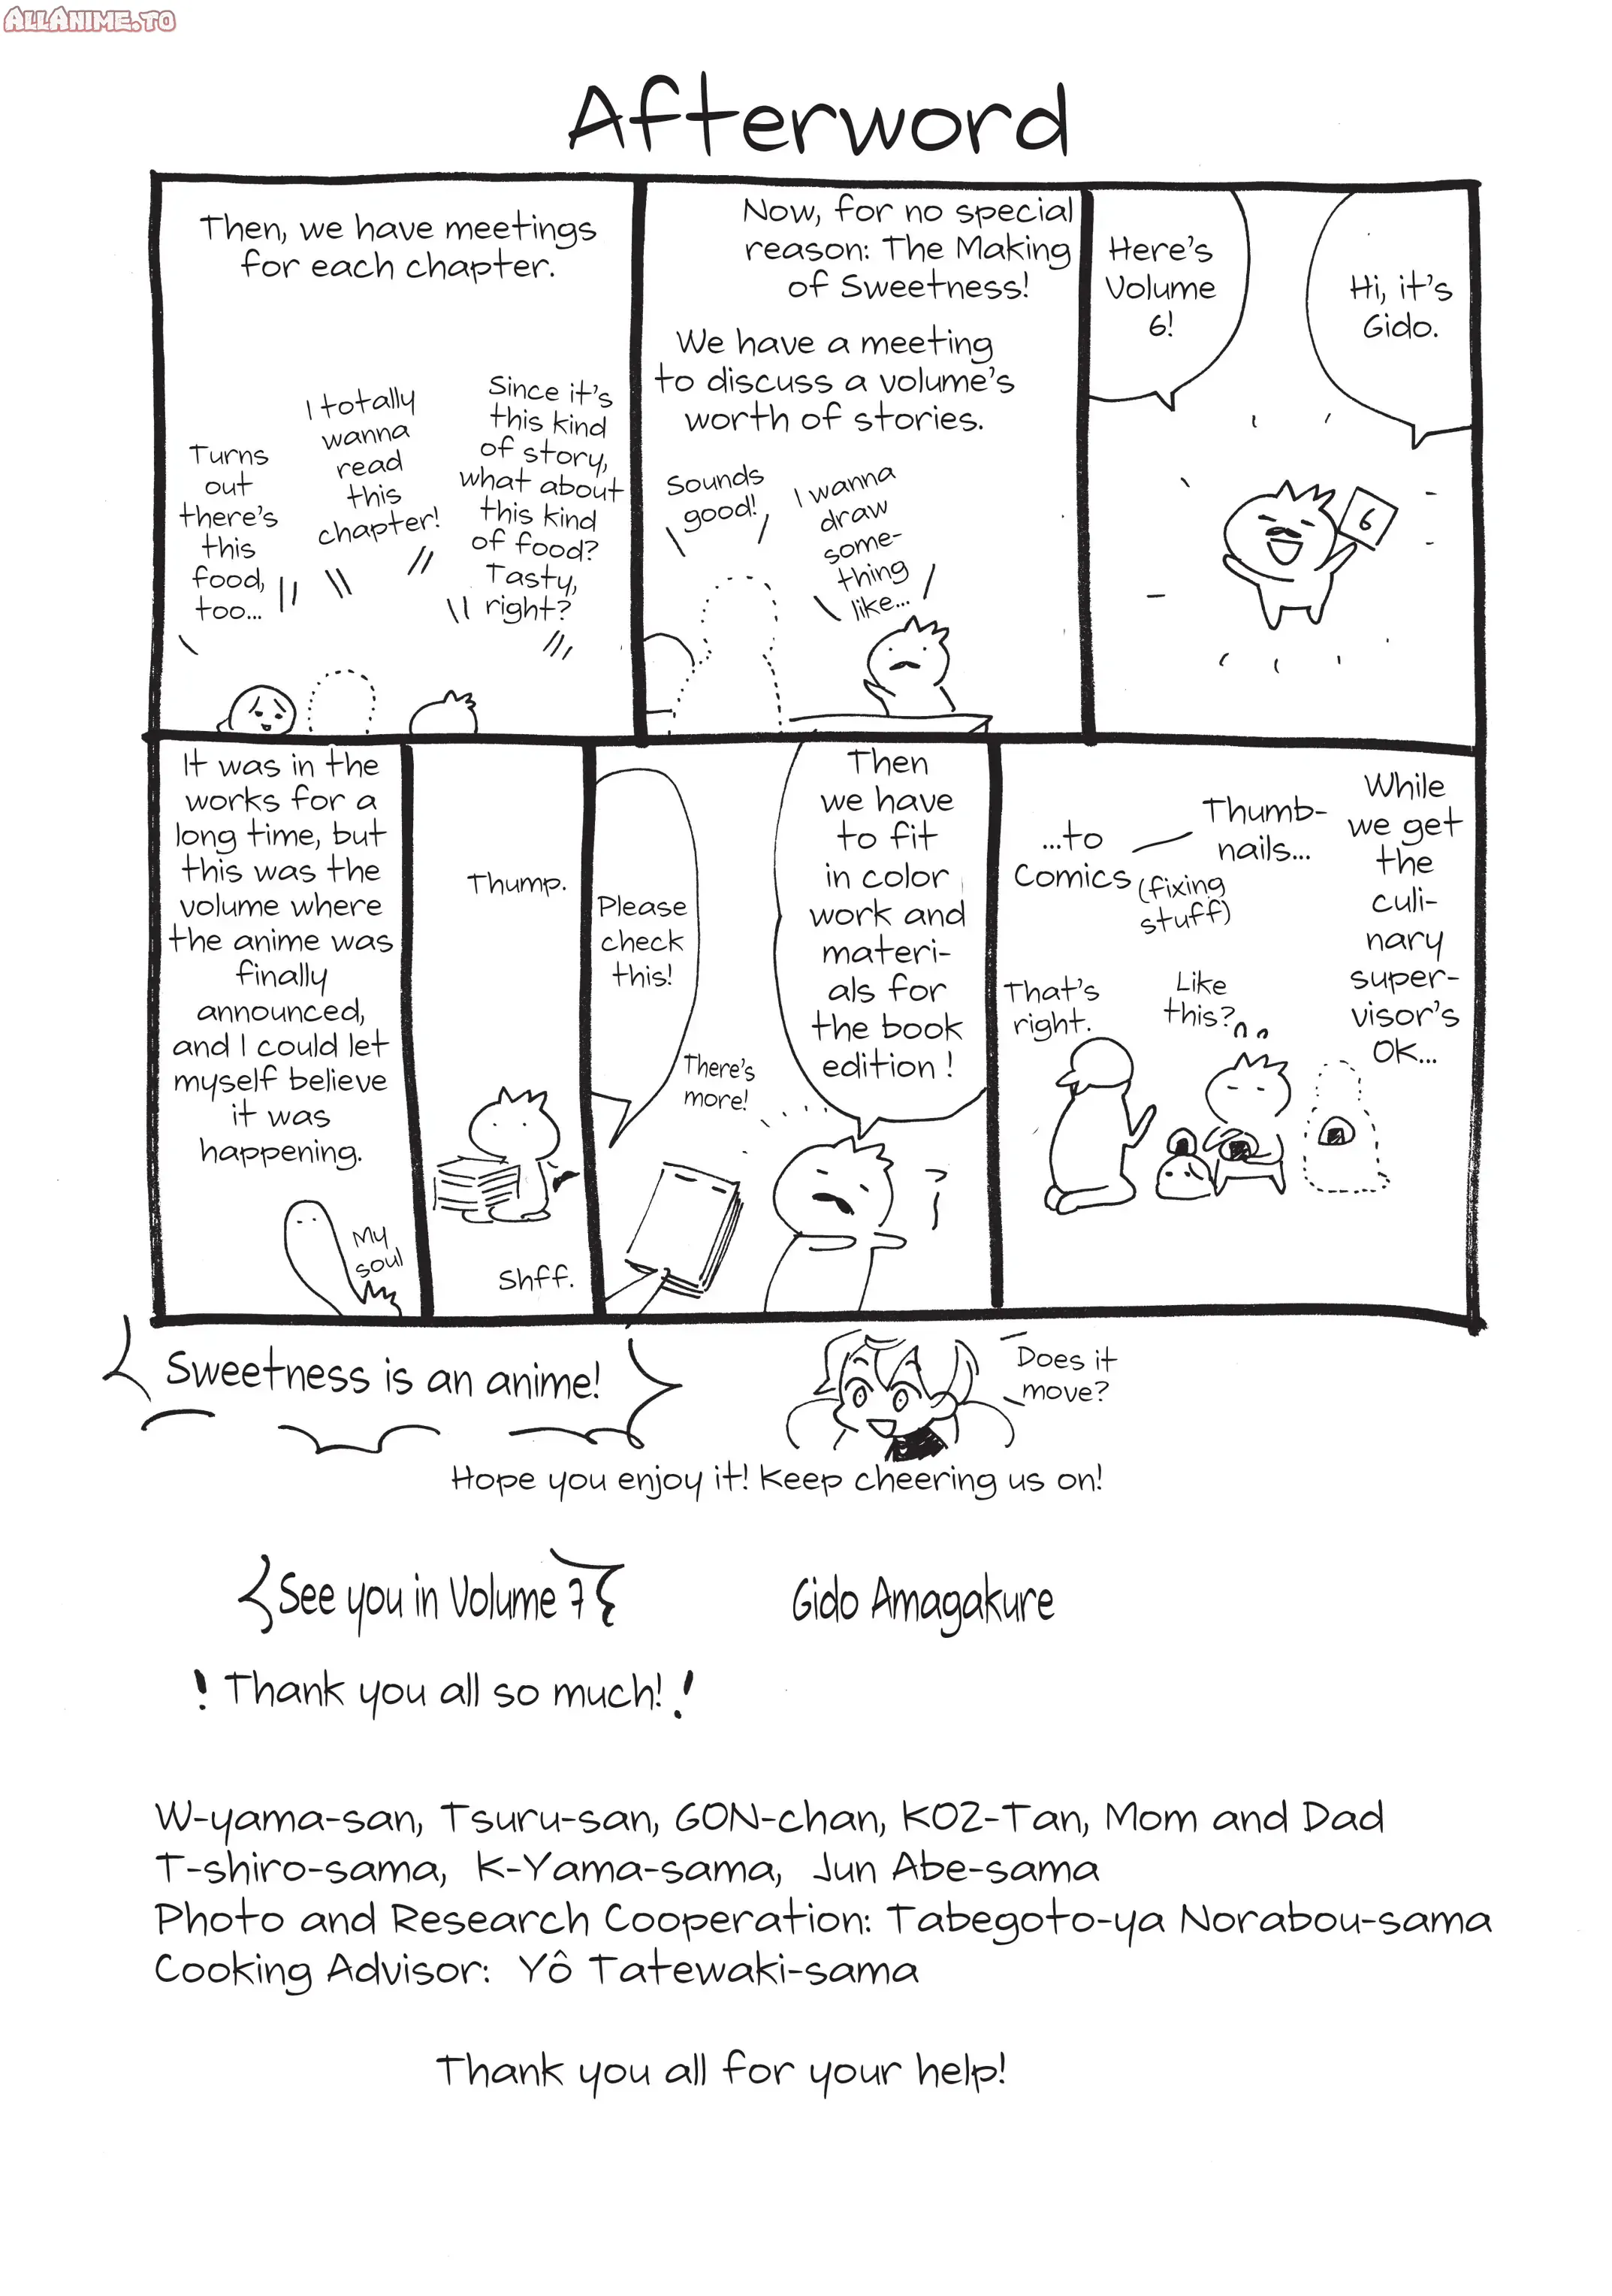 ALLANIME.TO
Afterword
Hi, it's
Gido.
Here's
Volume
6!
Now, for no special
reason: The Making
of Sweetness!
We have a meeting
to discuss a volume's
worth of stories.
I wanna
draw
some-
thing
like...
Sounds
good!
Then, we have meetings
for each chapter.
Since it's
this kind
of story,
what about
this kind
of food?
Tasty,
right?
I totally
wanna
read
this
chapter!
Turns
out
there's
this
food,
too...
While
we get
the
culi-
nary
super-
visor's
OK...
Thumb-
nails...
...to
Comics
(fixing
stuff)
Like
this?
That's
right.
Then
we have
to fit
in color
work and
materi-
als for
the book
edition!
There's
more!
Please
check
this!
Thump.
Shff.
It was in the
works for a
long time, but
this was the
volume where
the anime was
finally
announced,
and I could let
myself believe
it was
happening.
My
soul
Sweetness is an anime!
Does it
move?
Hope you enjoy it! Keep cheering us on!
See you in Volume 7
Gido Amagakure
! Thank you all so much! !
W-yama-san, Tsuru-san, GON-chan, KOZ-Tan, Mom and Dad
T-shiro-sama, K-Yama-sama, Jun Abe-sama
Photo and Research Cooperation: Tabegoto-ya Norabou-sama
Cooking Advisor: Yô Tatewaki-sama
Thank you all for your help!
6